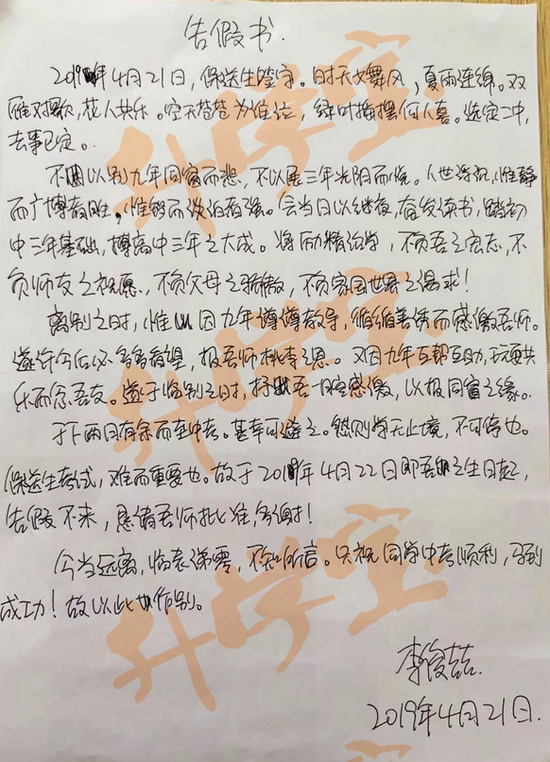 告假书.
2019年4月21日,保送生签字。日时天文舞风,夏雨连绵。双
雁对歌,花人共乐。空天苍苍为谁泣,绿叶摇摆何人喜。选定二中,
去事已定。
不因以别九年同窗而悲,不以展三年光阴而悦。人世浮沉,惟静
而广博者胜,惟能而淡泊者强。会当日以继夜,奋发读书,踏初
中三年基础,搏高中三年之大成。将励精治学,不负吾之宏志,不
负师友之祝愿,不负父母之骄傲,不负家国世界之渴求!
离别之时,惟以因九年谆谆教导,循循善诱而感激吾师。
遂许今后必多多看望,报吾师栽培之恩。又因九年互帮互助,玩耍共
乐而念吾友。遂于临别之时,抒吾一腔感激,以报同窗之缘。
于下两日有余而至中考。甚幸可避之。然则学无止境,不可停也。
保送生考试,难而重要也。故于2019年4月22日即吾之生日起,
告假不来,恳请吾师批准,多谢!
今当远离,临表涕零,不知所言。只祝同学中考顺利,马到
成功!故以此作别。
李俊喆.
2019年4月21日.
升学宝
升学宝
升学宝